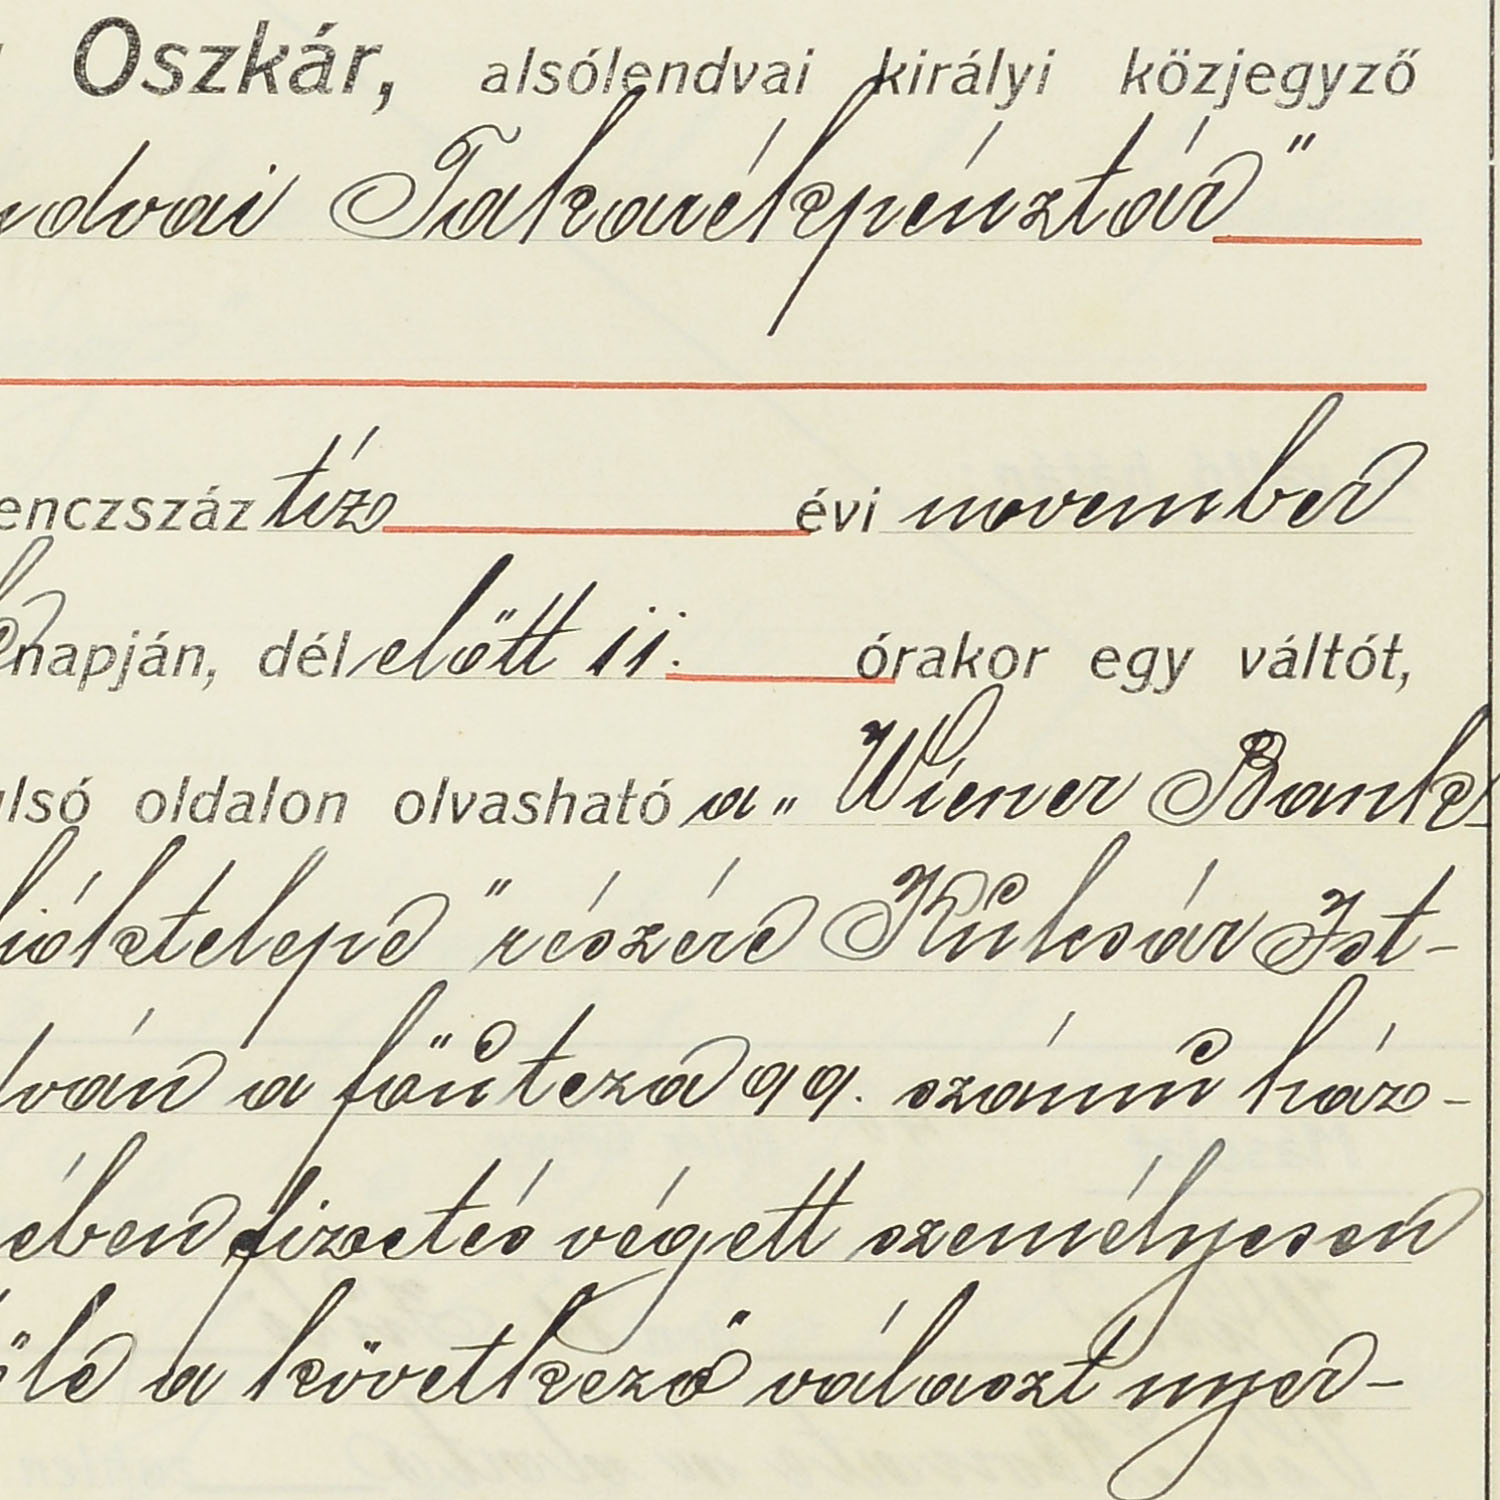 Oszkár, alsólendvai királyi közjegyző
ndvai Takarékpénztár"
enczszáz tíz évi november
napján, délelőtt 11. órakor egy váltót,
alsó oldalon olvasható a „Wiener Bank-
fióktelepe" részére Kulcsár Ist-
ván a főutcza 99. számú ház-
ében fizetés végett személyesen
őle a következő választ nyer-